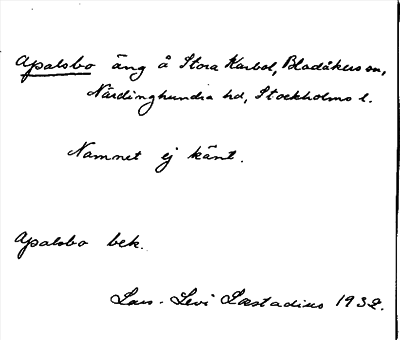 Apalsbo äng å Stora Karbol, Bladåkers sn,
Närdinghundra hd, Stockholms l.
Namnet ej känt.
Apalsbo bek.
Lars-Levi Læstadius 1932.